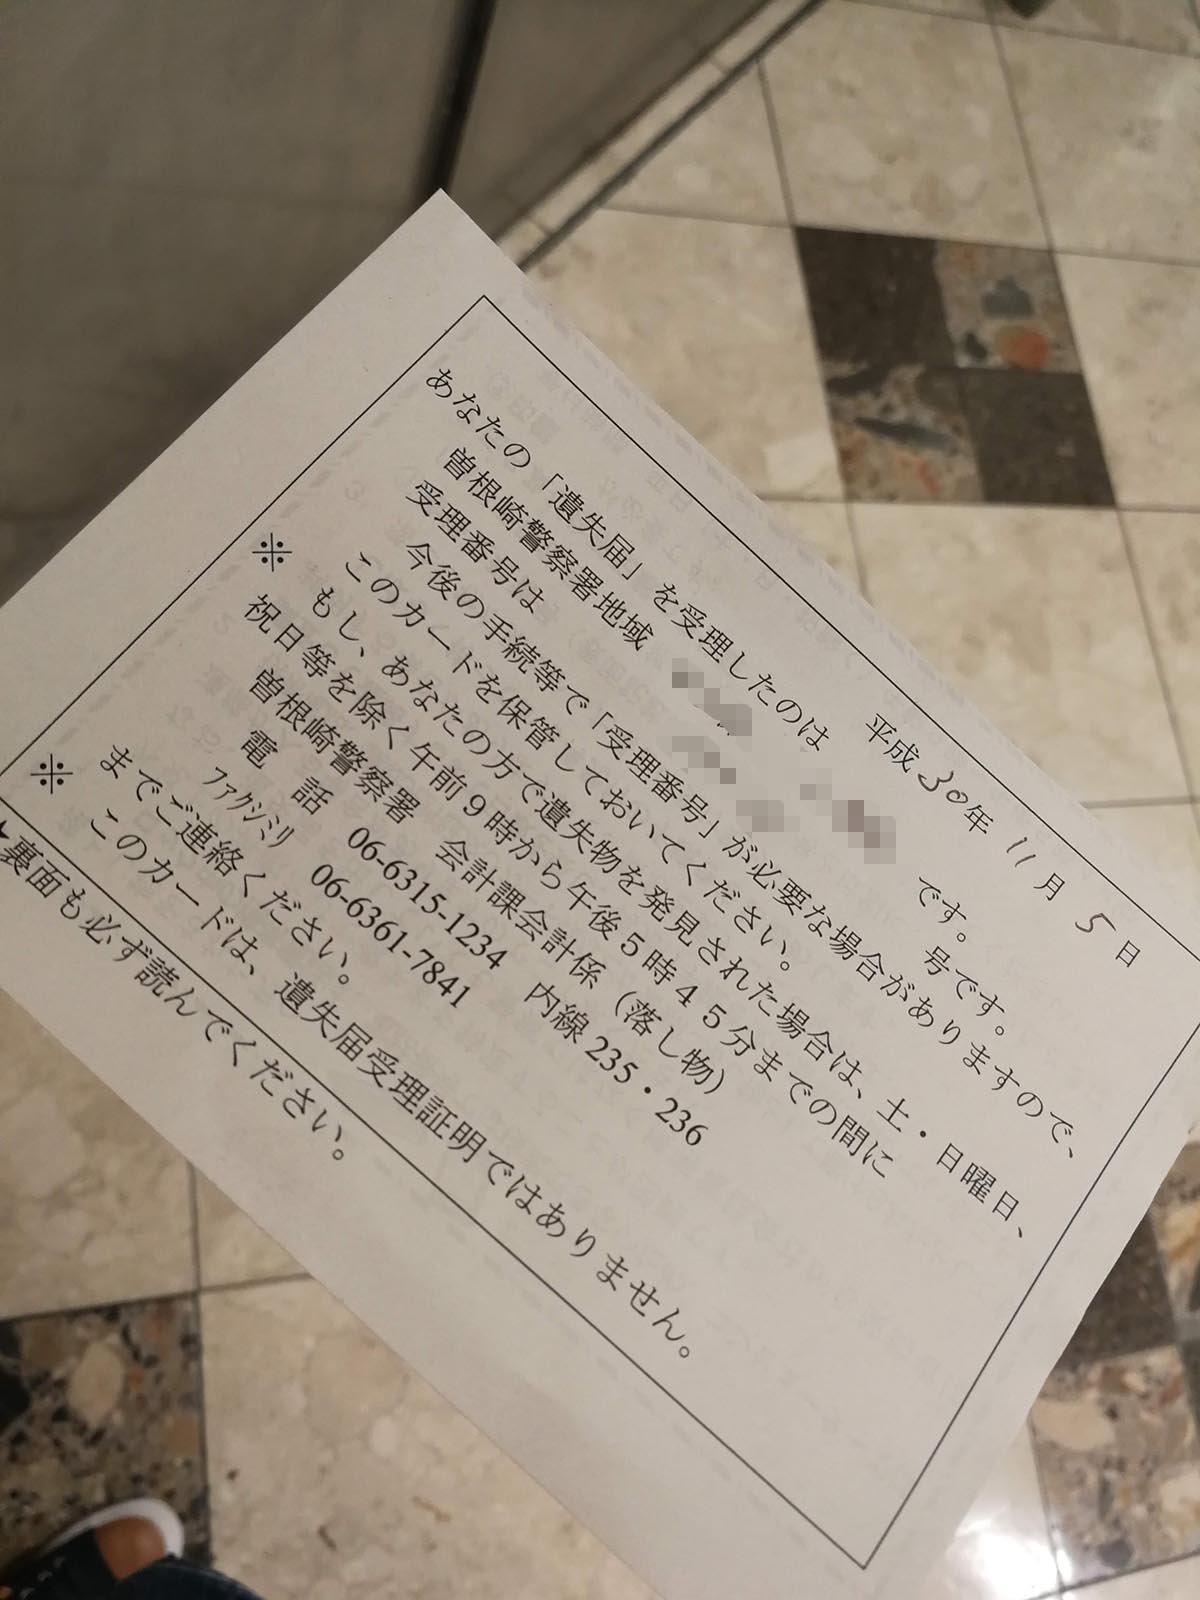 平成30年 11月 5日
あなたの「遺失届」を受理したのは
曽根崎警察署地域 です。
受理番号は 号です。
今後の手続等で「受理番号」が必要な場合がありますので、
このカードを保管しておいてください。
※ もし、あなたの方で遺失物を発見された場合は、土・日曜日、
祝日等を除く午前9時から午後5時45分までの間に
曽根崎警察署 会計課会計係（落し物）
電 話 06-6315-1234 内線 235・236
ﾌｧｸｼﾐﾘ 06-6361-7841
までご連絡ください。
※ このカードは、遺失届受理証明ではありません。
★裏面も必ず読んでください。